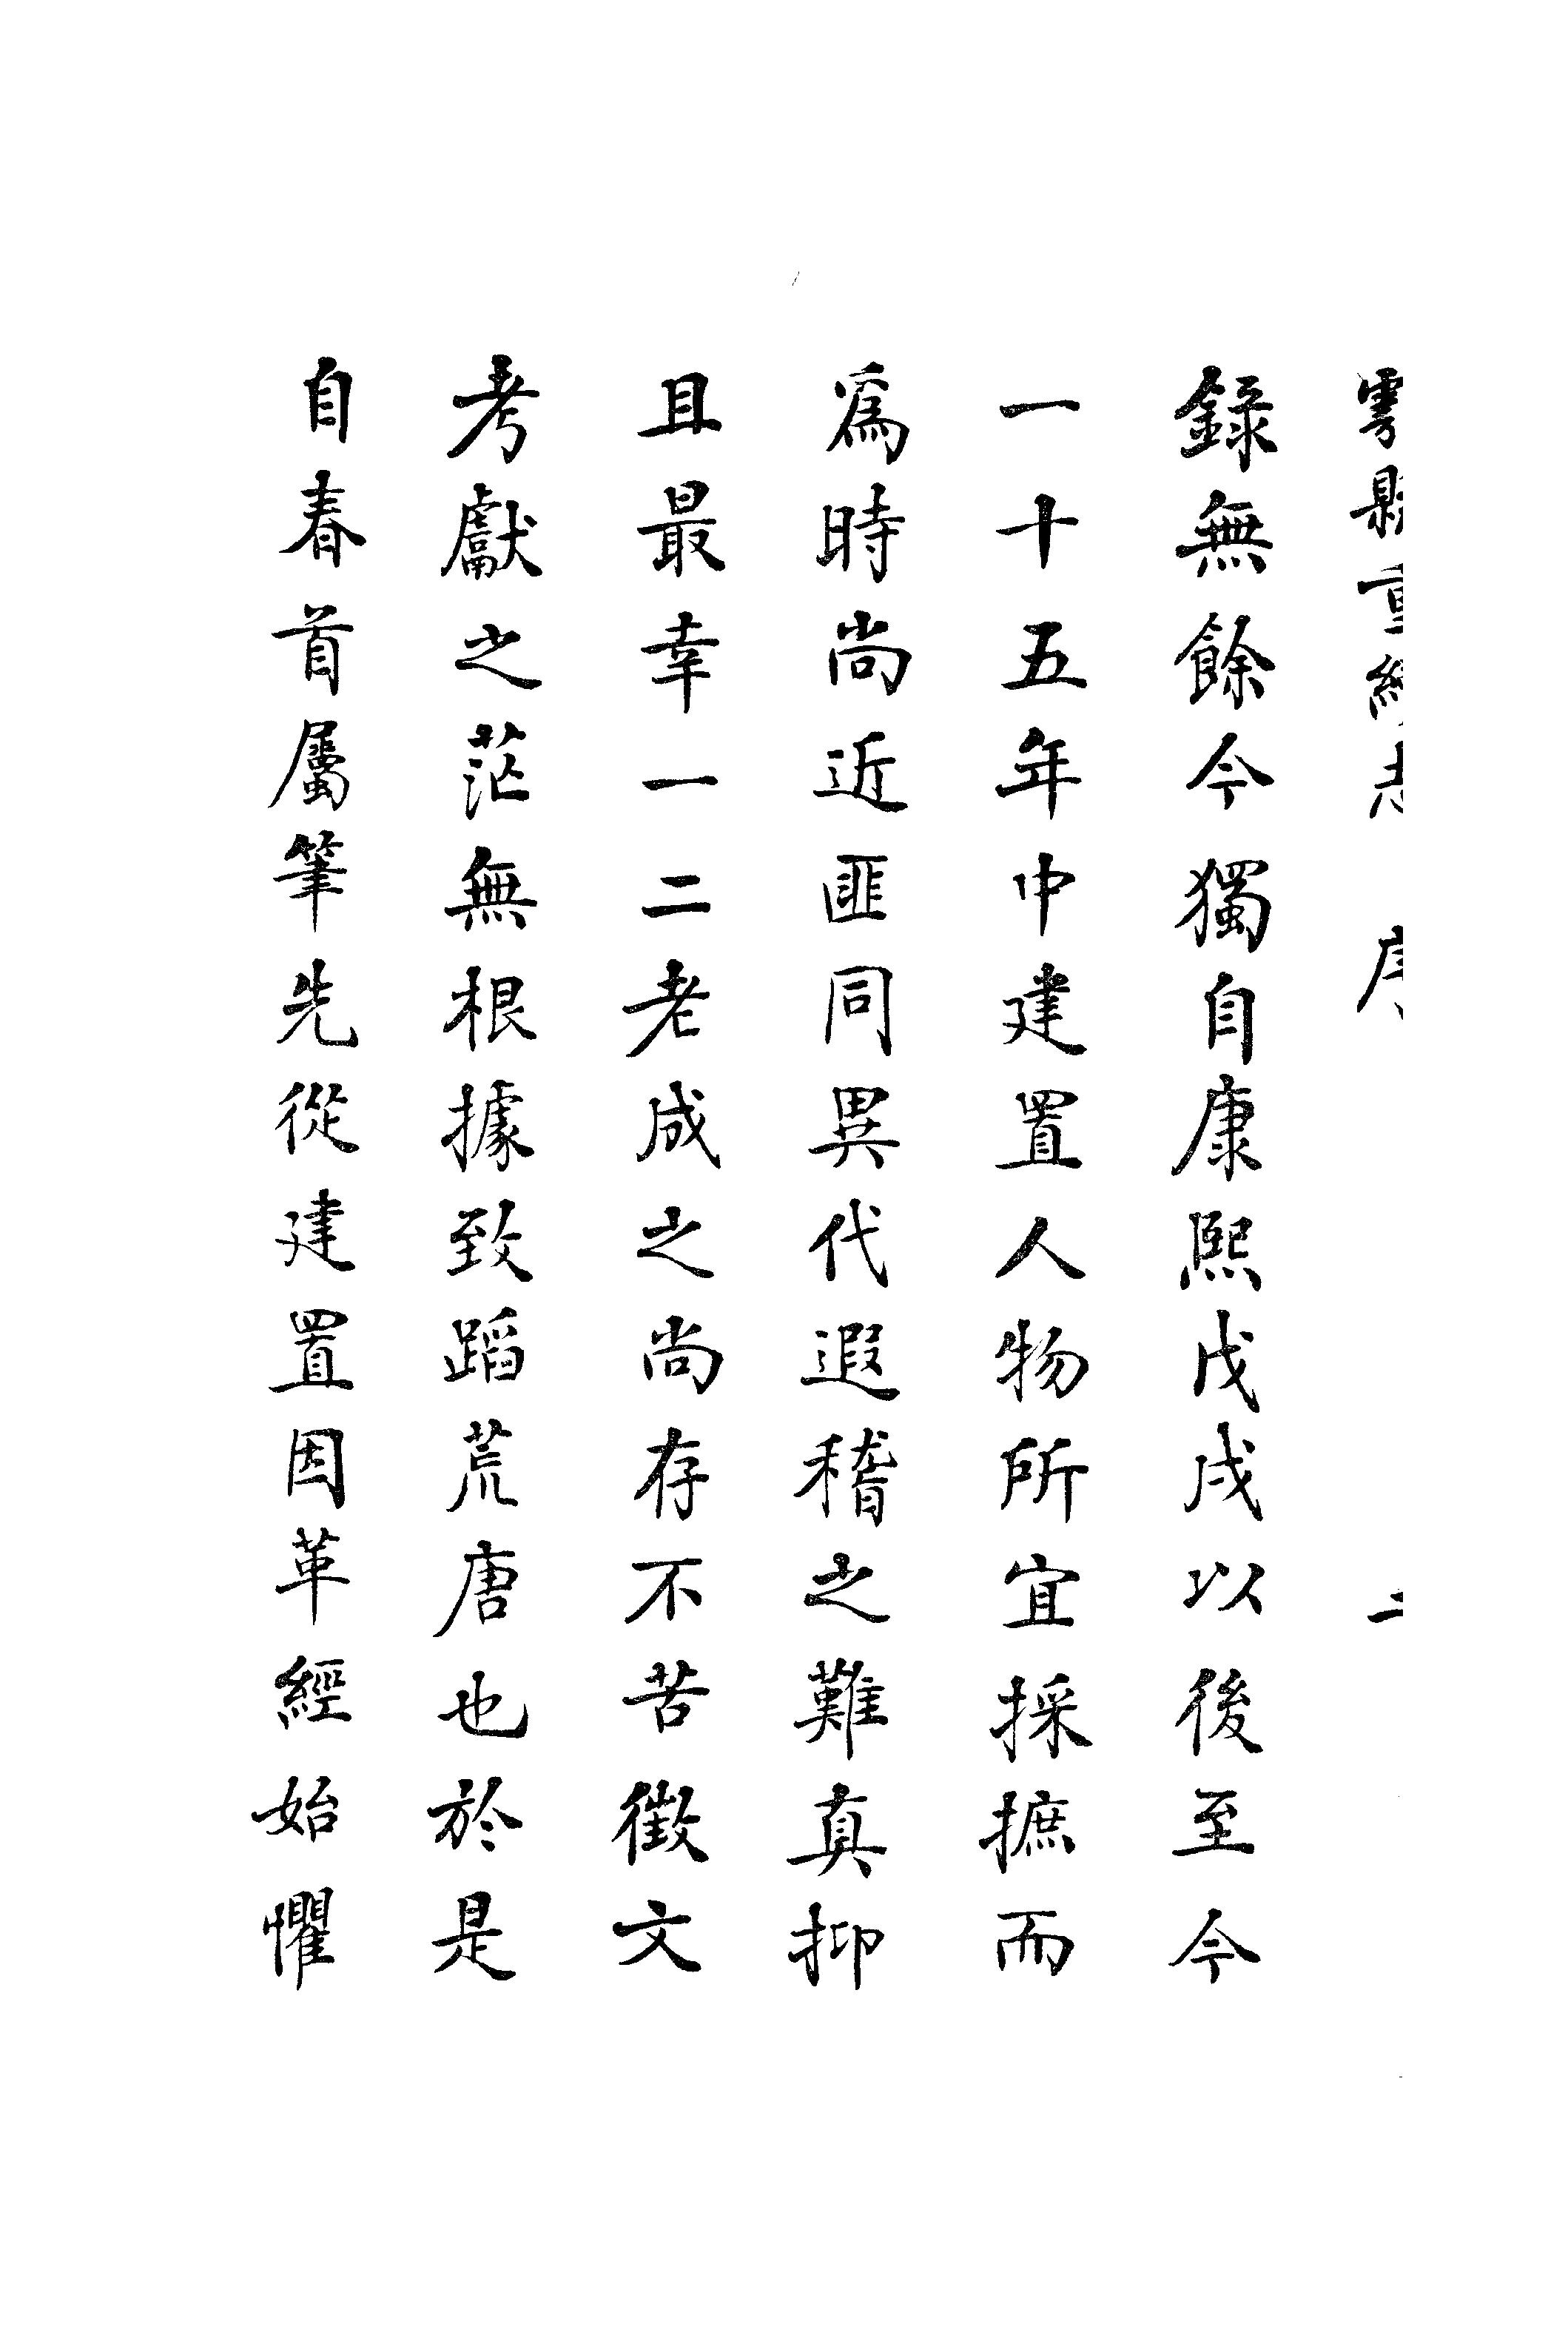 雩縣重續志 序 二
錄無餘今獨自康熙戊戌以後至今
一十五年中建置人物所宜採摭而
爲時尚近匪同異代遐稽之難真抑
且最幸一二老成之尚存不苦徵文
考獻之茫無根據致蹈荒唐也於是
自春首屬筆先從建置因革經始懼